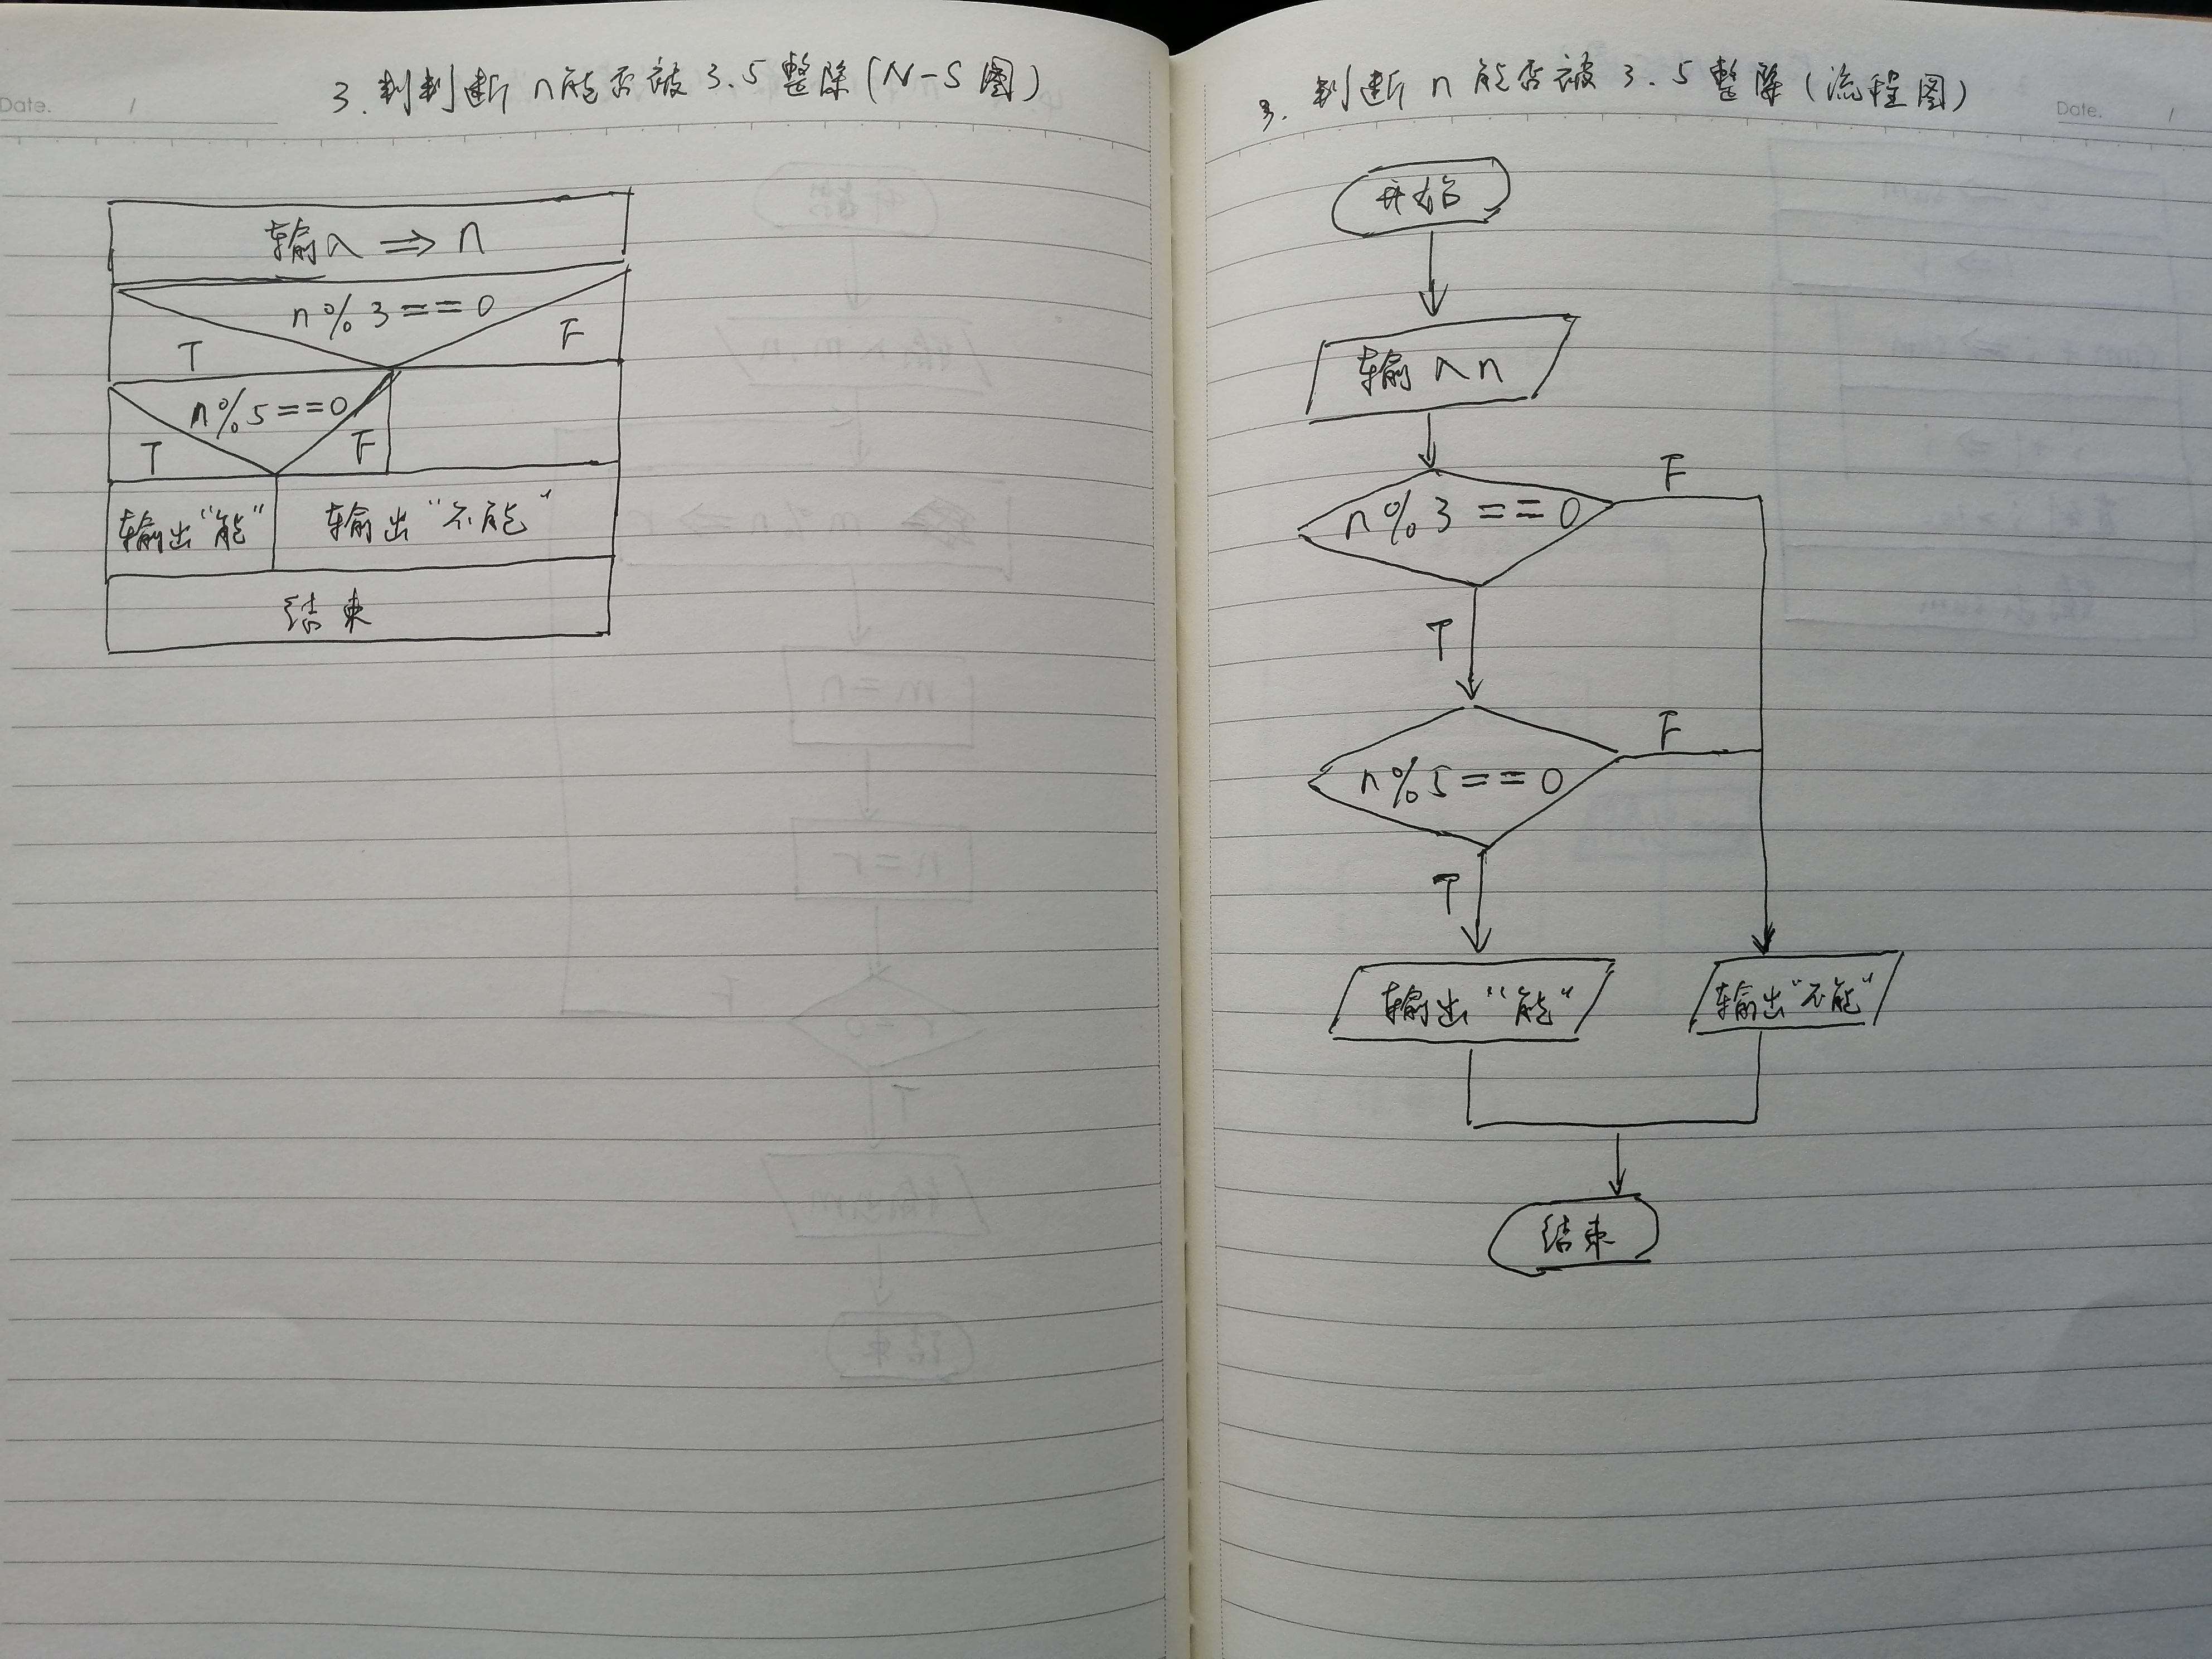 Date. /
3. 判判断 n能否被 3.5 整除 (N-S 图)
输入 ⇒ n
n%3==0
T F
n%5==0
T F
输出"能" 输出"不能"
结束
Date. /
3. 判断 n 能否被 3.5 整除 (流程图)
开始
输入n
n%3==0
F
T
n%5==0
F
T
输出"能" 输出"不能"
结束